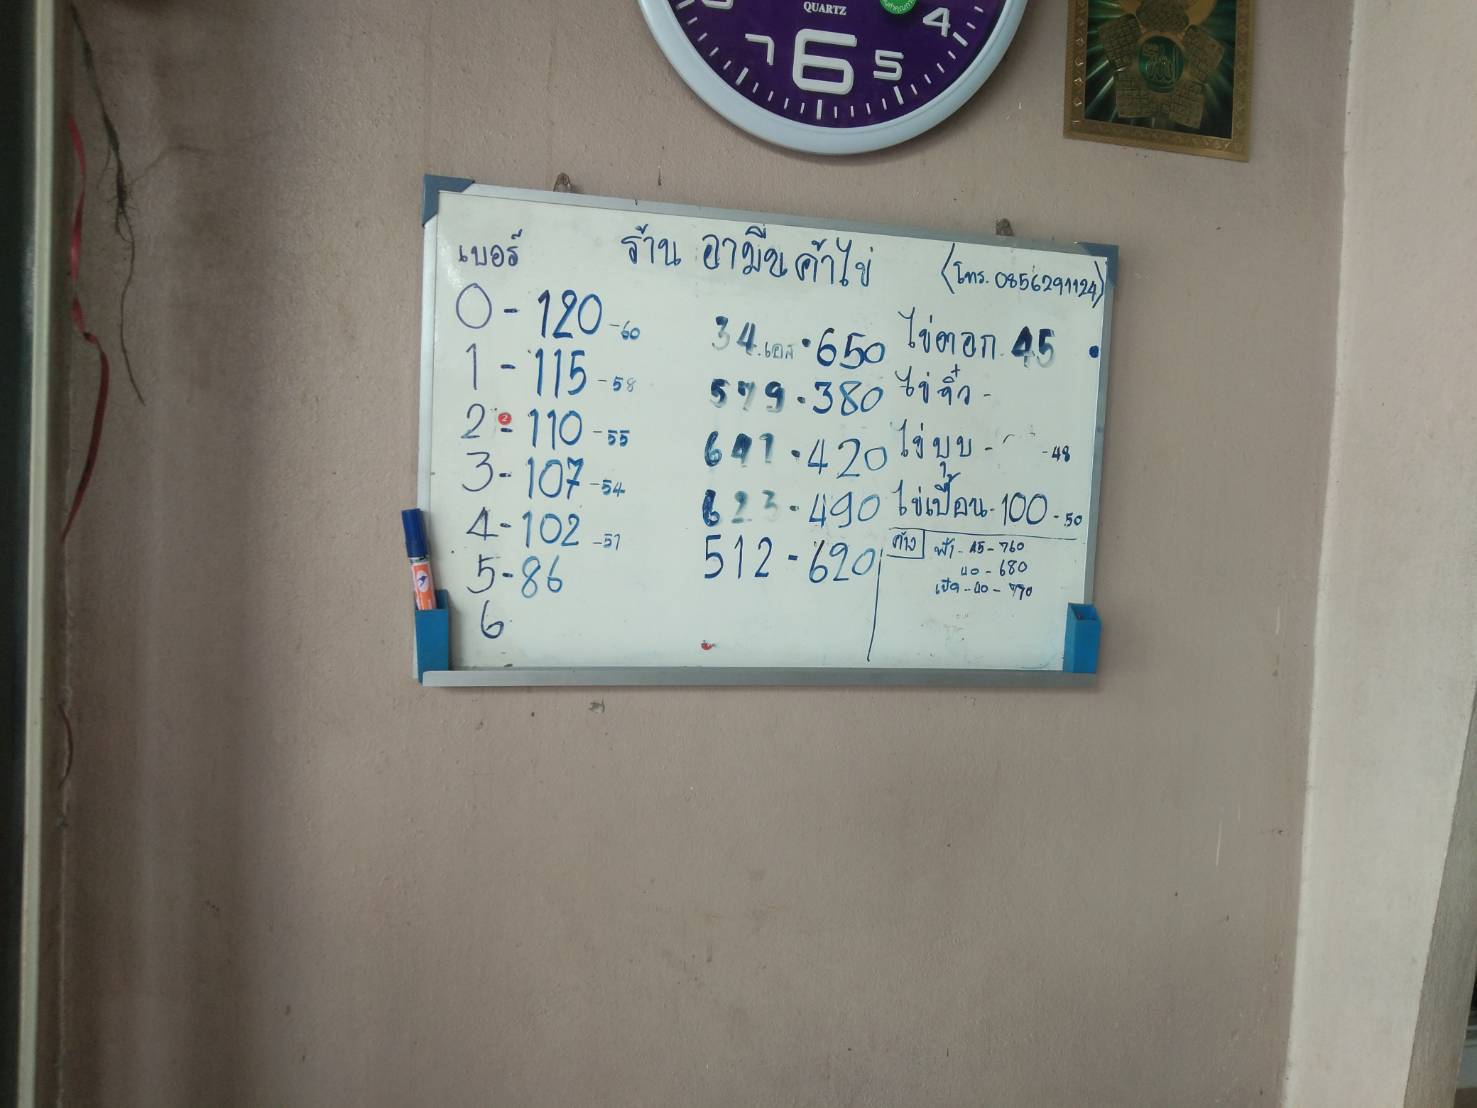 QUARTZ
4
7 6 5
ร้าน อามีนค้าไข่
(โทร. 0856291124)
เบอร์
0 - 120 - 60
1 - 115 - 58
2 - 110 - 55
3 - 107 - 54
4 - 102 - 51
5 - 86
6
34.เอส . 650
579 . 380
641 . 420
623 . 490
512 - 620
ไข่ตอก . 45
ไข่จิ๋ว -
ไข่บุบ - - 48
ไข่เปื้อน - 100 - 50
ค้าง
ฟ้า - 45 - 760
40 - 680